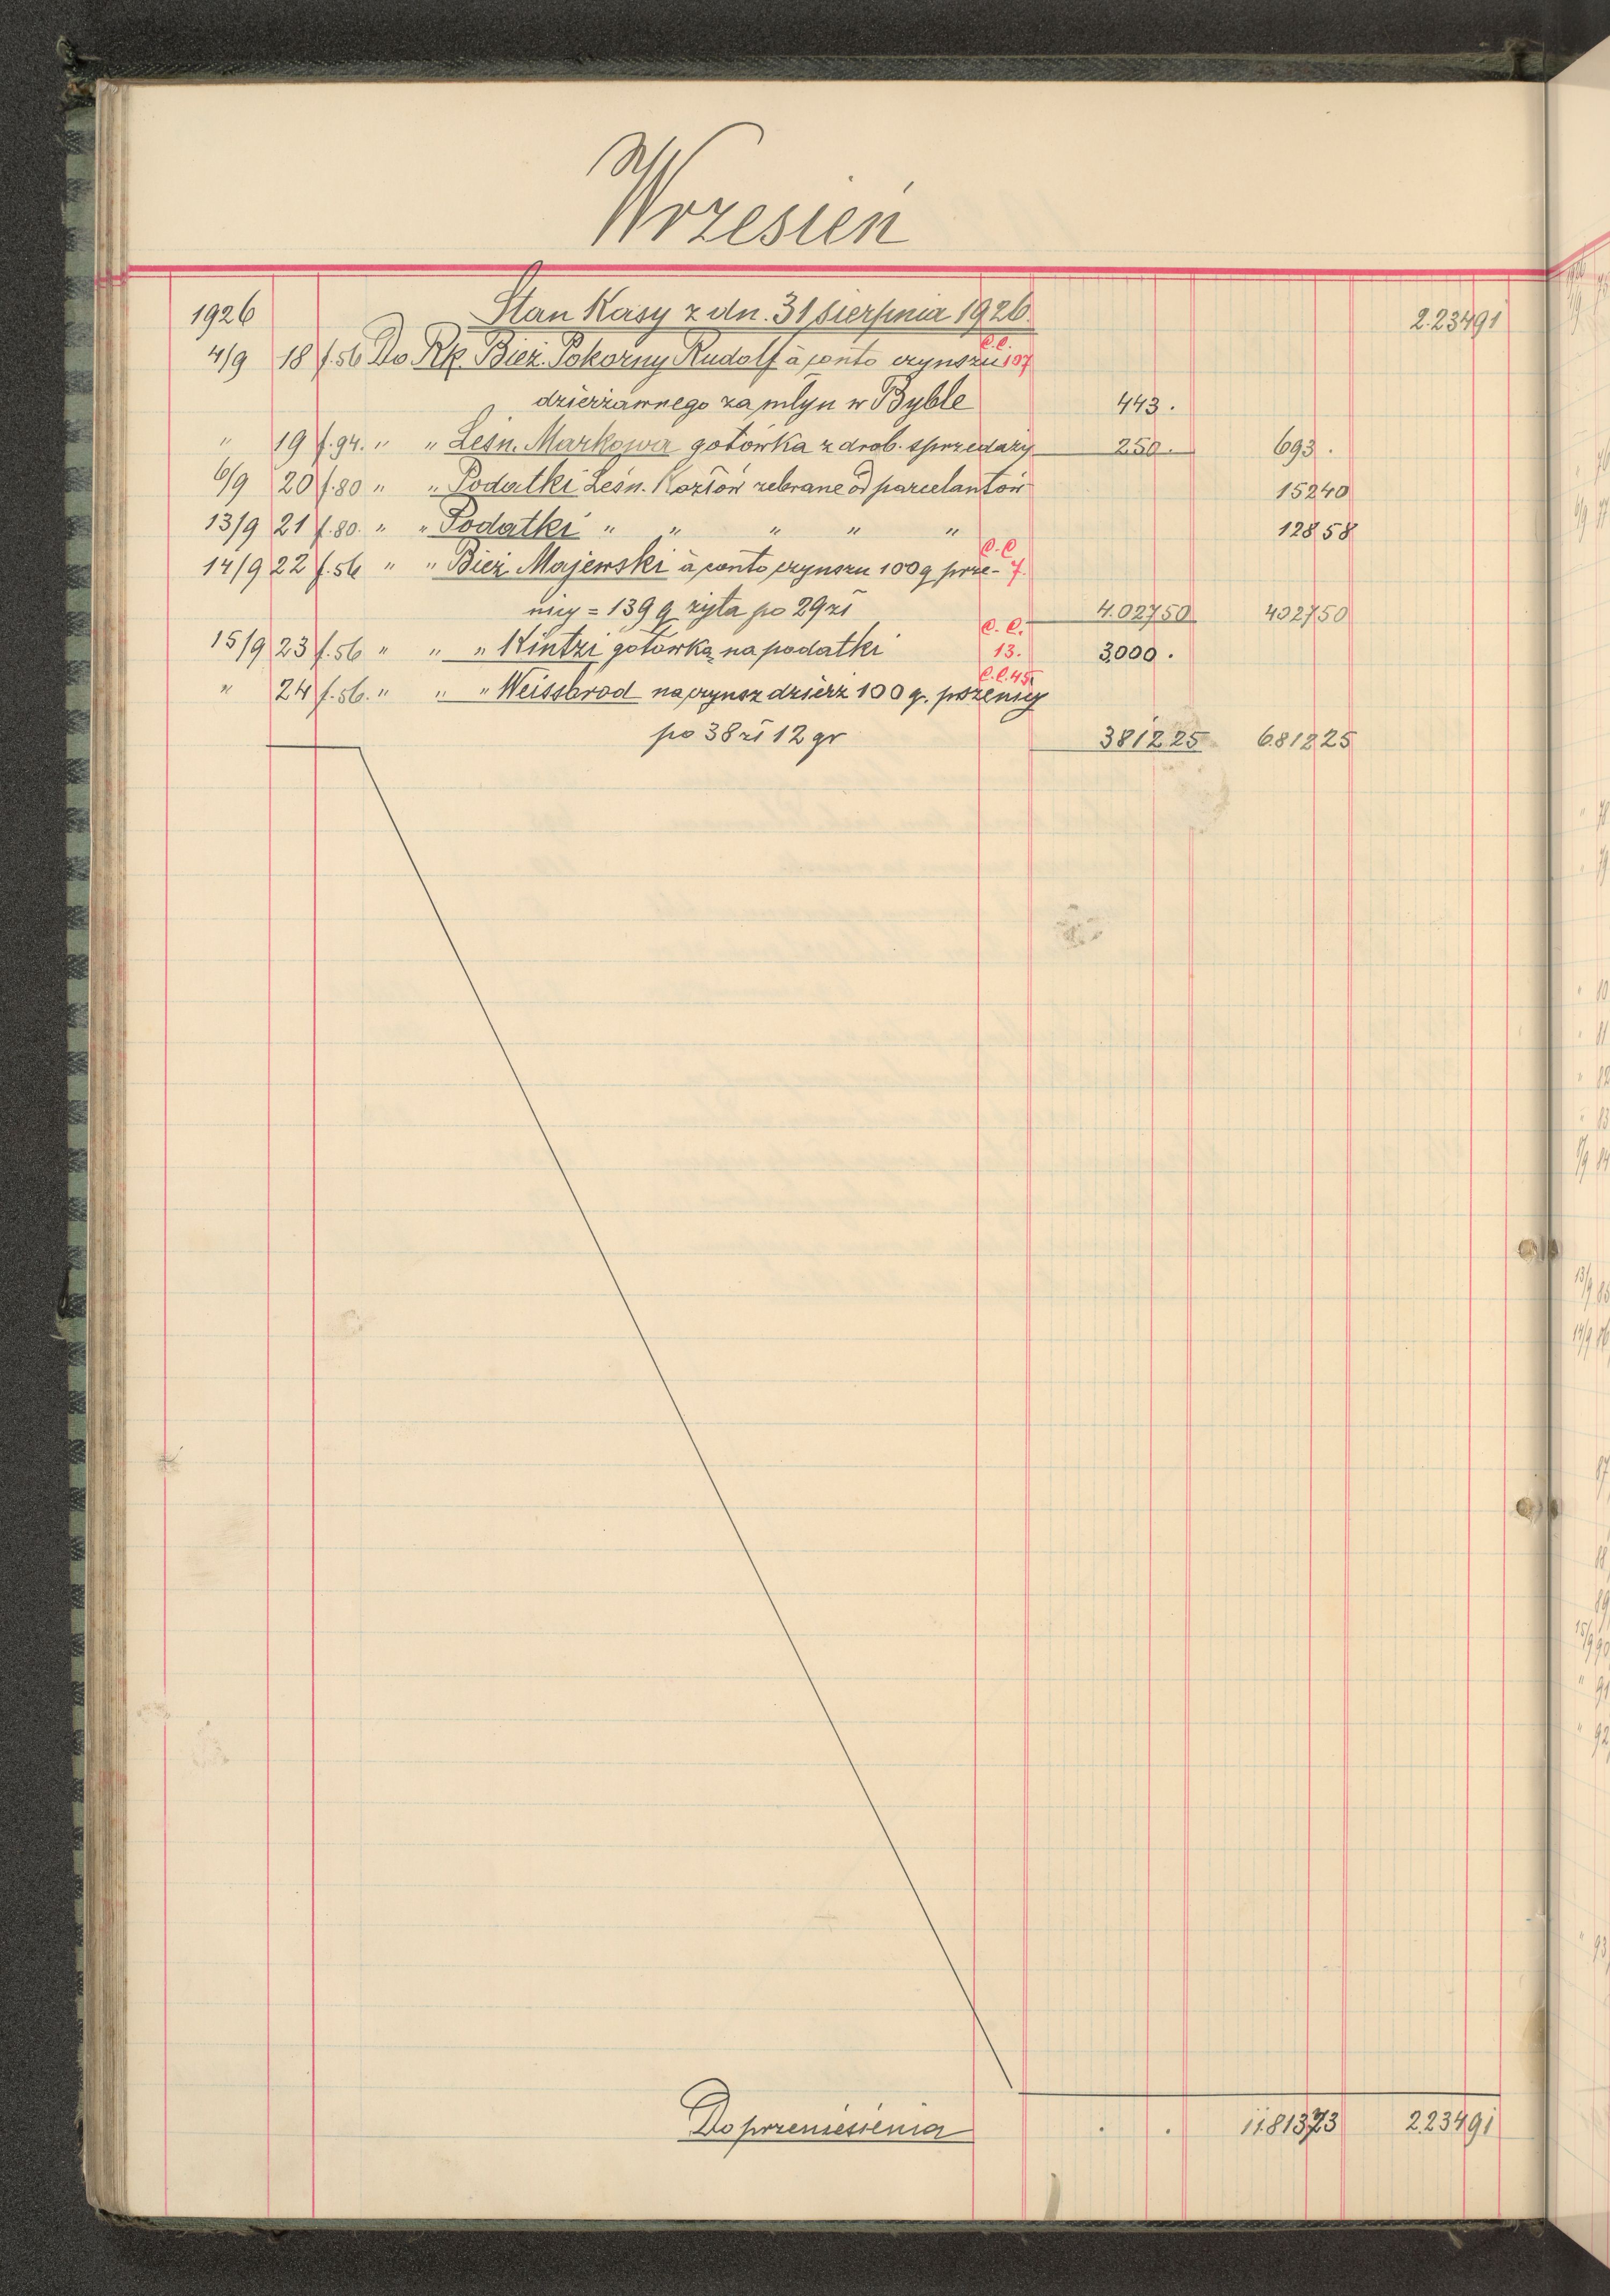 Wrzesień
1926 Stan Kasy z dn. 31 sierpnia 1926. 2.234 91
4/9 18 f. 56 Do Rk. Bież. Pokorny Rudolf à conto czynszu C.C. 107
dzierżawnego za młyn w Byble 443 .
" 19 f. 94. " " Leśn. Markowa gotówka z drob. sprzedaży 250 . 693 .
6/9 20 f. 80 " " Podatki Leśn. Kozłów zebrane od parcelantów 152 40
13/9 21 f. 80. " " Podatki " " " " " 128 58
14/9 22 f. 56 " " Bież. Majewski à conto czynszu 100 q psze- C.C 7.
nicy = 139 q żyta po 29 zł 4.027 50 4027 50
15/9 23 f. 56 " " " Kintzi gotówką na podatki C.C. 13. 3,000 .
" 24 f. 56. " " " Weissbrod na czynsz dzierż 100 q. pszenicy C.C. 45
po 38 zł 12 gr 3812 25 6.812 25
Do przeniesienia . . 11.813 73 2.234 91